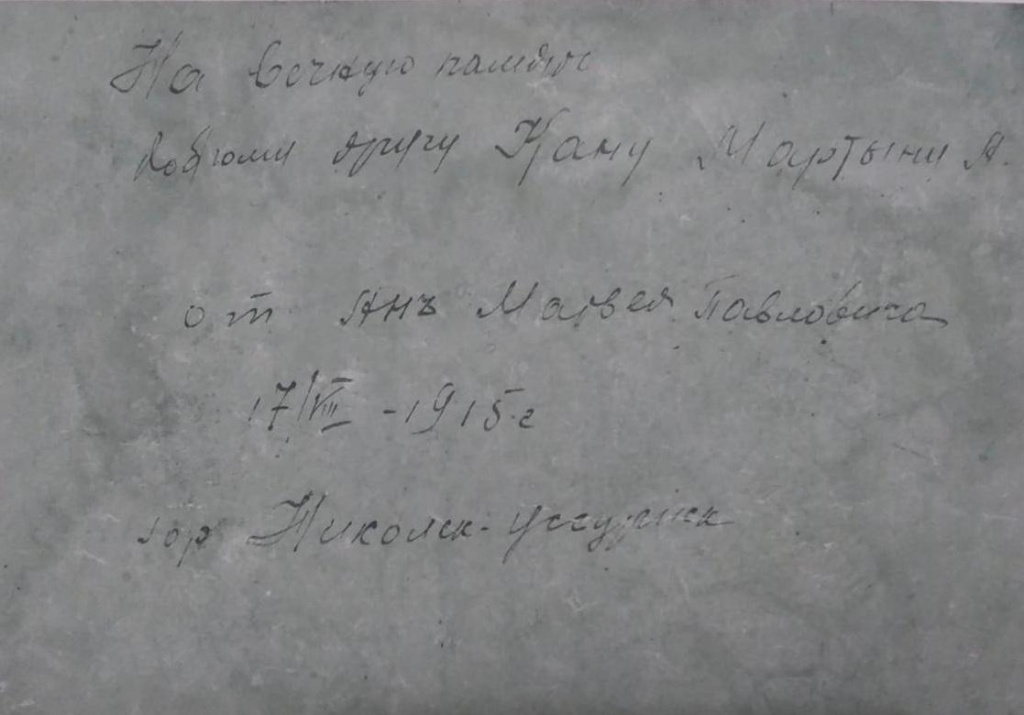 На вечную память
другу Кану Мартыну А.
от Янъ Матвея Павловича
17/VIII - 1915 г
гор Никольск-Уссурийск